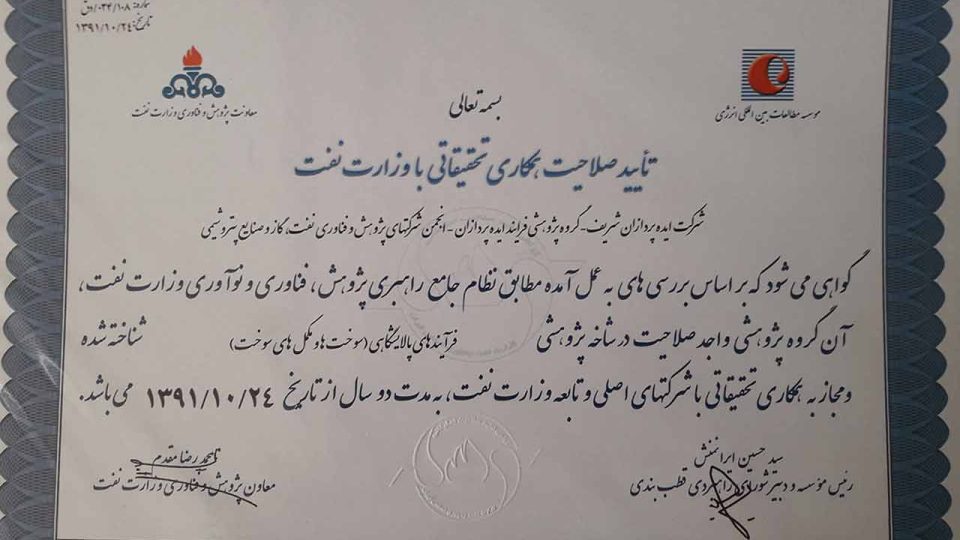 شماره: ۰۳۴/۱۰۸/دق
تاریخ: ۱۳۹۱/۱۰/۲۴
معاونت پژوهش و فناوری وزارت نفت
موسسه مطالعات بین المللی انرژی
بسمه تعالی
تأیید صلاحیت همکاری تحقیقاتی با وزارت نفت
شرکت ایده پردازان شریف - گروه پژوهشی فرایند ایده پردازان - انجمن شرکتهای پژوهش و فناوری نفت، گاز و صنایع پتروشیمی
گواهی می شود که بر اساس بررسی های به عمل آمده مطابق نظام جامع راهبری پژوهش، فناوری و نوآوری وزارت نفت،
آن گروه پژوهشی واجد صلاحیت در شاخه پژوهشی فرآیندهای پالایشگاهی (سوخت ها و مکمل های سوخت) شناخته شده
و مجاز به همکاری تحقیقاتی با شرکتهای اصلی و تابعه وزارت نفت، به مدت دو سال از تاریخ ۱۳۹۱/۱۰/۲۴ می باشد.
سید حسین
رئیس مؤسسه و دبیر شورای راهبردی قطب بندی
محمدرضا مقدم
معاون پژوهش و فناوری وزارت نفت